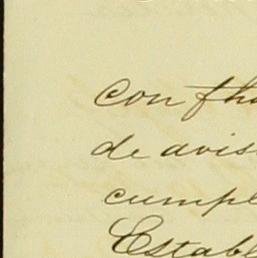 Con fha
de avis
cumple
Establ